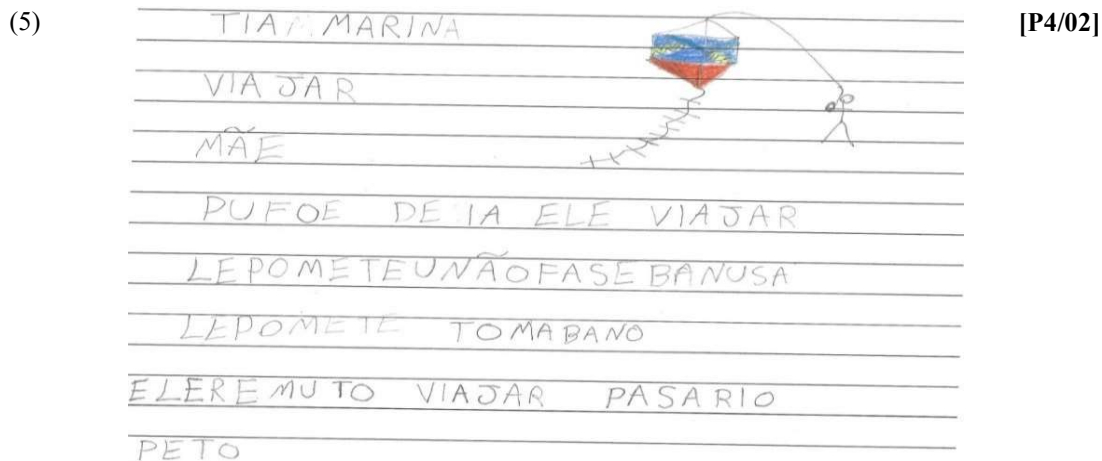 (5) [P4/02]
TIA MARINA
VIAJAR
MÃE
PUFOE DE IA ELE VIAJAR
LEPOMETEUNÃOFASEBANUSA
LEPOMETE TOMABANO
ELEREMUTO VIAJAR PASARIO
PETO